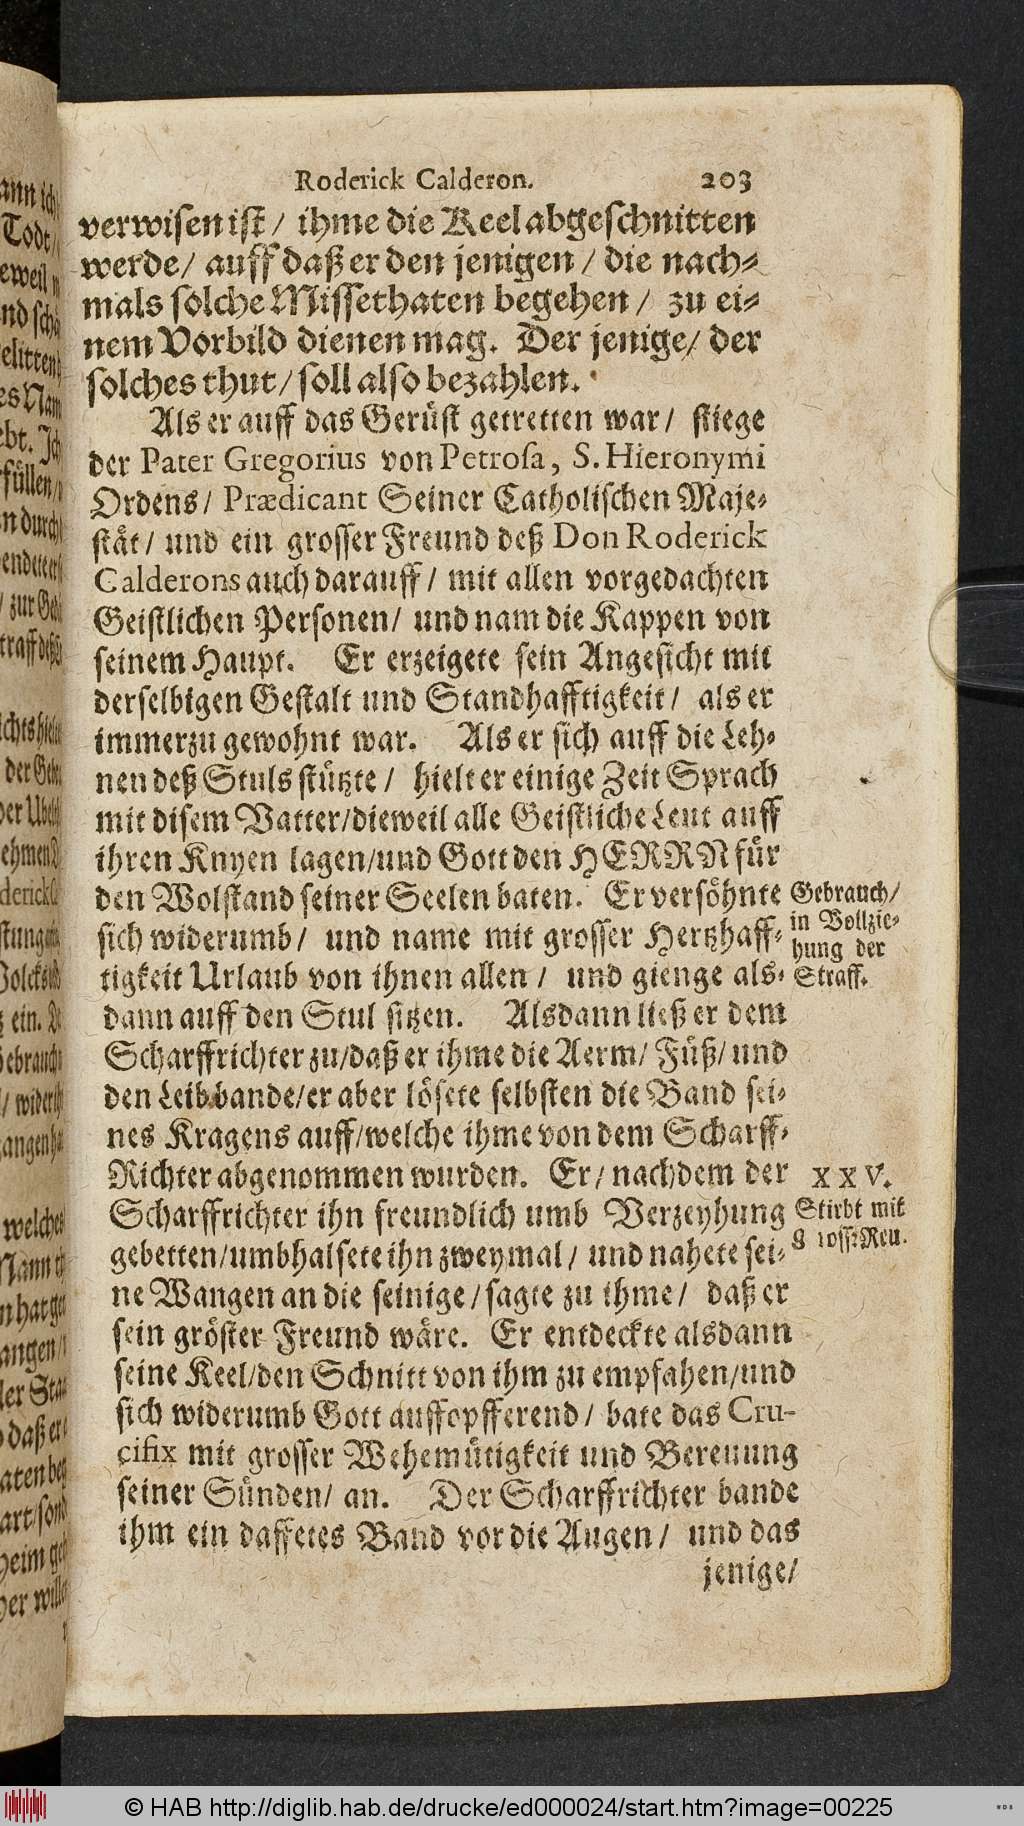 Roderick Calderon. 203
verwisen ist / ihme die Keel abgeschnitten
werde / auff daß er den jenigen / die nach-
mals solche Missethaten begehen / zu ei-
nem Vorbild dienen mag. Der jenige / der
solches thut / soll also bezahlen.
Als er auff das Gerüst getretten war / stiege
der Pater Gregorius von Petrosa, S. Hieronymi
Ordens / Prædicant Seiner Catholischen Maje-
stät / und ein grosser Freund deß Don Roderick
Calderons auch darauff / mit allen vorgedachten
Geistlichen Personen / und nam die Kappen von
seinem Haupt. Er erzeigete sein Angesicht mit
derselbigen Gestalt und Standhafftigkeit / als er
immerzu gewohnt war. Als er sich auff die Leh-
nen deß Stuls stützte / hielt er einige Zeit Sprach
mit disem Vatter / dieweil alle Geistliche Leut auff
ihren Knyen lagen / und Gott den HERRN für
den Wolstand seiner Seelen baten. Er versöhnte
sich widerumb / und name mit grosser Hertzhaff-
tigkeit Urlaub von ihnen allen / und gienge als-
dann auff den Stul sitzen. Alsdann ließ er dem
Scharffrichter zu / daß er ihme die Aerm / Füß / und
den Leib bande / er aber lösete selbsten die Band sei-
nes Kragens auff / welche ihme von dem Scharff-
Richter abgenommen wurden. Er / nachdem der
Scharffrichter ihn freundlich umb Verzeyhung
gebetten / umbhalsete ihn zweymal / und nahete sei-
ne Wangen an die seinige / sagte zu ihme / daß er
sein gröster Freund wäre. Er entdeckte alsdann
seine Keel / den Schnitt von ihm zu empfahen / und
sich widerumb Gott auffopfferend / bate das Cru-
cifix mit grosser Wehemütigkeit und Bereuung
seiner Sünden / an. Der Scharffrichter bande
ihm ein daffetes Band vor die Augen / und das
jenige /
Gebrauch /
in Vollzie-
hung der
Straff.
XXV.
Stirbt mit
grosser Reu.
© HAB http://diglib.hab.de/drucke/ed000024/start.htm?image=00225